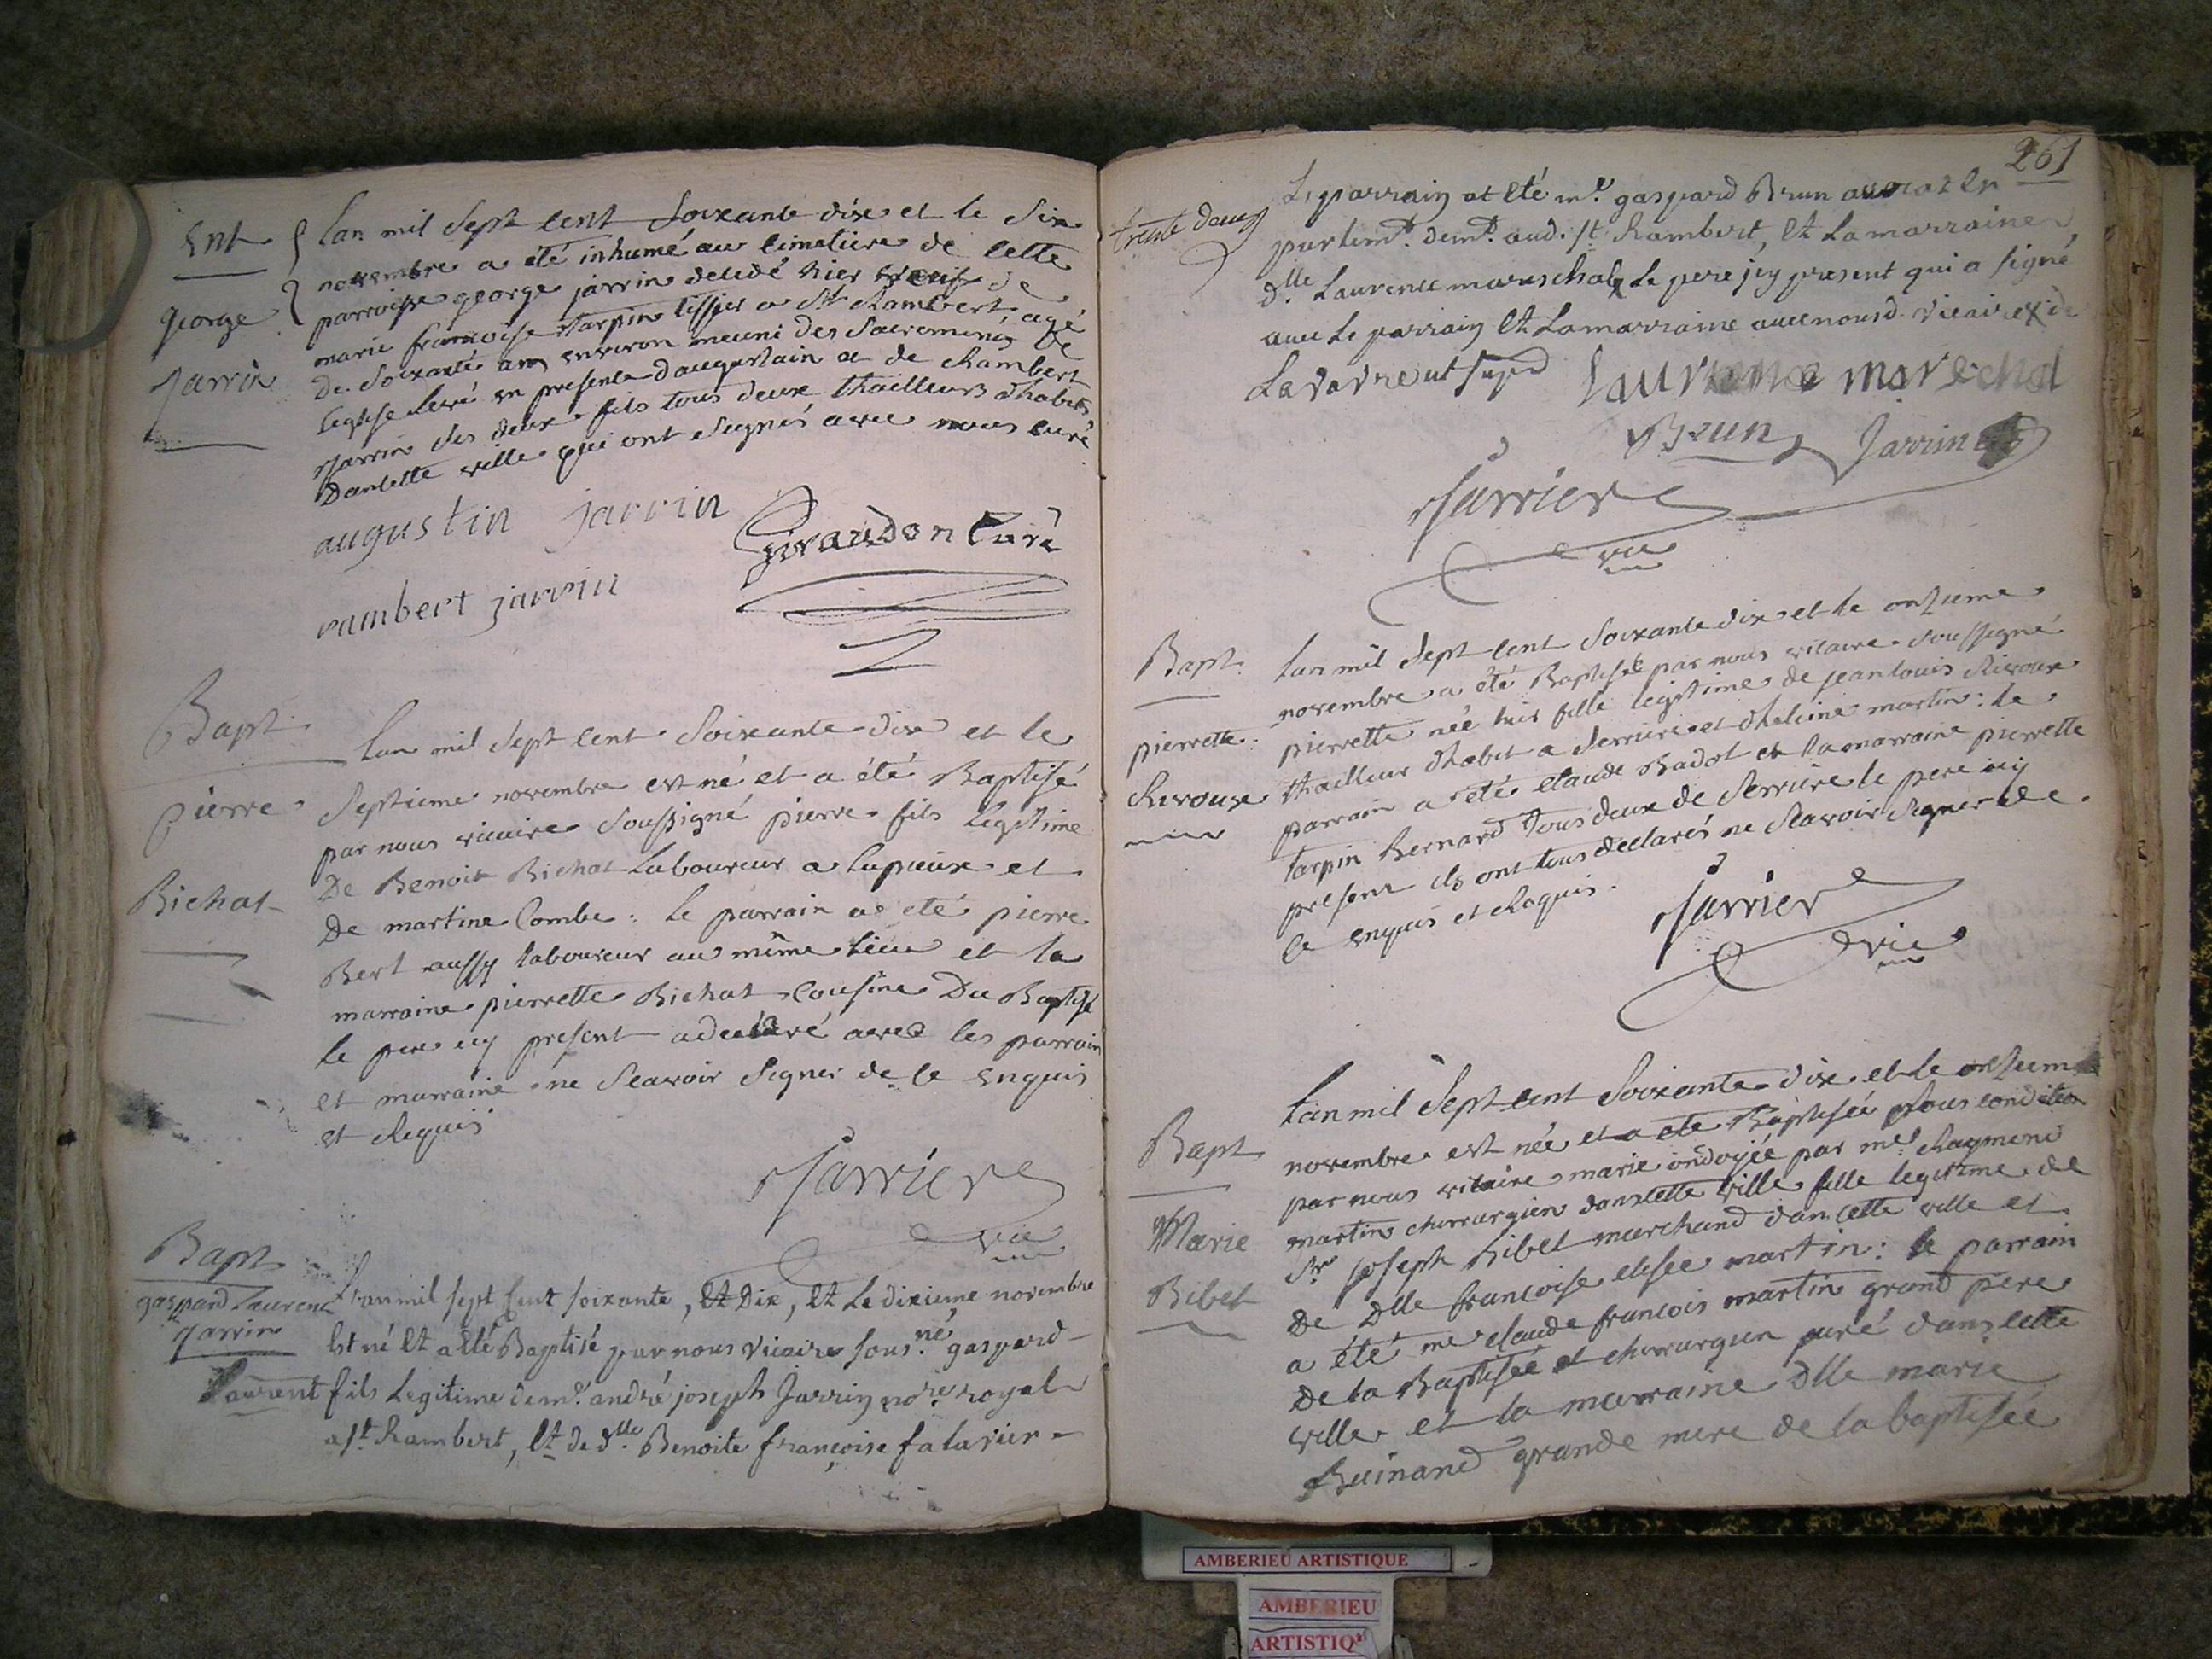 Ent
George
Jarrin
Lan mil Sept cent Soixante dix et le Six
novembre a été inhumé au cimetiere de cette
parroisse george jarrin decedé hier veuf de
marie francoise tarpin tissier a St Rambert agé
De Soixante ans environ meuni des Sacremens De
leglise levé en presence daugustain et de Rambert
Jarrin ses deux fils tous deux thailleurs dhabits
Dans cette ville qui ont Signés avec nous curé
augustin jarrin
Giraudon Curé
rambert jarrin
Bapt
pierre
Bichat
Lan mil Sept cent Soixante dix et le
Septieme novembre est né et a été Baptisé
par nous vicaire Soussigné pierre fils Legitime
De Benoit Bichat Laboureur a Lupieux et
De martine Combe : le parrain a été pierre
Bert aussy laboureur au même lieu et la
marraine pierrette Bichat Cousine Du Baptisé
le pere icy present a declaré avec les parrain
et marraine ne Scavoir Signer de ce Enquis
et Requis
Jarrier
vic
Bapt
gaspard Laurent
Jarrin
Lan mil sept Cent soixante, et Dix, et Le dixieme novembre
Est né Et a été Baptisé par nous vicaire sous.né gaspard
Laurent fils Legitime de me. andré joseph Jarrin no.re royal
a st Rambert, et de dlle Benoite françoise falavier
261
trente deux
Le parrain at Eté me. gaspard Brun avocat En
parlemt. demt. aud. st Rambert, Et La marraine
dlle Laurence mareschal Le pere jcy present qui a signé
avec Le parrain Et La marraine avec nousd. vicaire de
Laurence marechal
Brun
Jarrin
Jarrier
vic
Bapt
pierrette
Rivoux
Lan mil Sept cent Soixante dix et le onzieme
novembre a été Baptisée par nous vicaire Soussigné
pierrette née hier fille legitime de jean louis Rivoux
thailleur dhabit a Serriere et dheleine martin : le
parrain a été claude Badot et la marraine pierrette
tarpin Bernard tous deux de Serriere le pere icy
present ils ont tous declarés ne Scavoir Signer de
ce enquis et Requis.
Jarrier
vic
Bapt
Marie
Bibet
Lan mil Sept cent Soixante dix et le onzieme
novembre est née et a été Baptisée Sous condition
par nous vicaire marie ondoyée par me. Raymond
martin chirurgien dans cette ville fille legitime de
Sr joseph Bibet marchand dans cette ville et
De Dlle francoise elisée martin : le parrain
a été me claude francois martin grand pere
De la Baptisée et chirurgien juré dans cette
ville et la marraine Dlle marie
Buinand grande mere de la baptisée
AMBERIEU ARTISTIQUE
AMBERIEU
ARTISTIQ